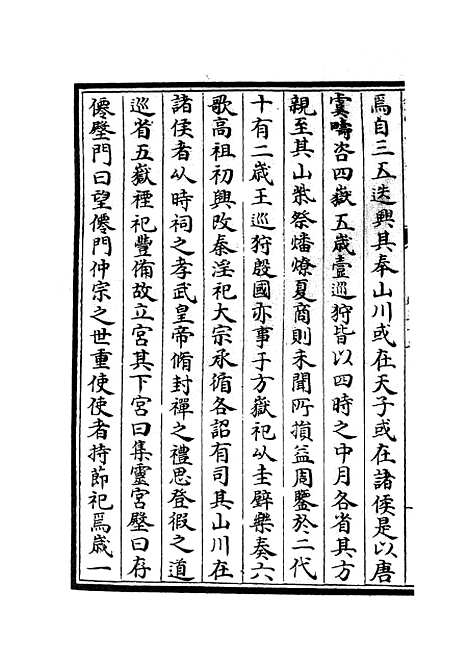 焉自三五迭興其奉山川或在天子或在諸侯是以唐
虞疇咨四嶽五歲壹巡狩皆以四時之中月各省其方
親至其山柴祭燔燎夏商則未聞所損益周鑒於二代
十有二歲王巡狩殷國亦事于方嶽祀以圭璧樂奏六
歌高祖初興改秦淫祀大宗承循各詔有司其山川在
諸侯者以時祠之孝武皇帝脩封禪之禮思登徦之道
巡省五嶽禋祀豐備故立宮其下宮曰集靈宮壂曰存
僊壂門曰望僊門仲宗之世重使使者持節祀焉歲一